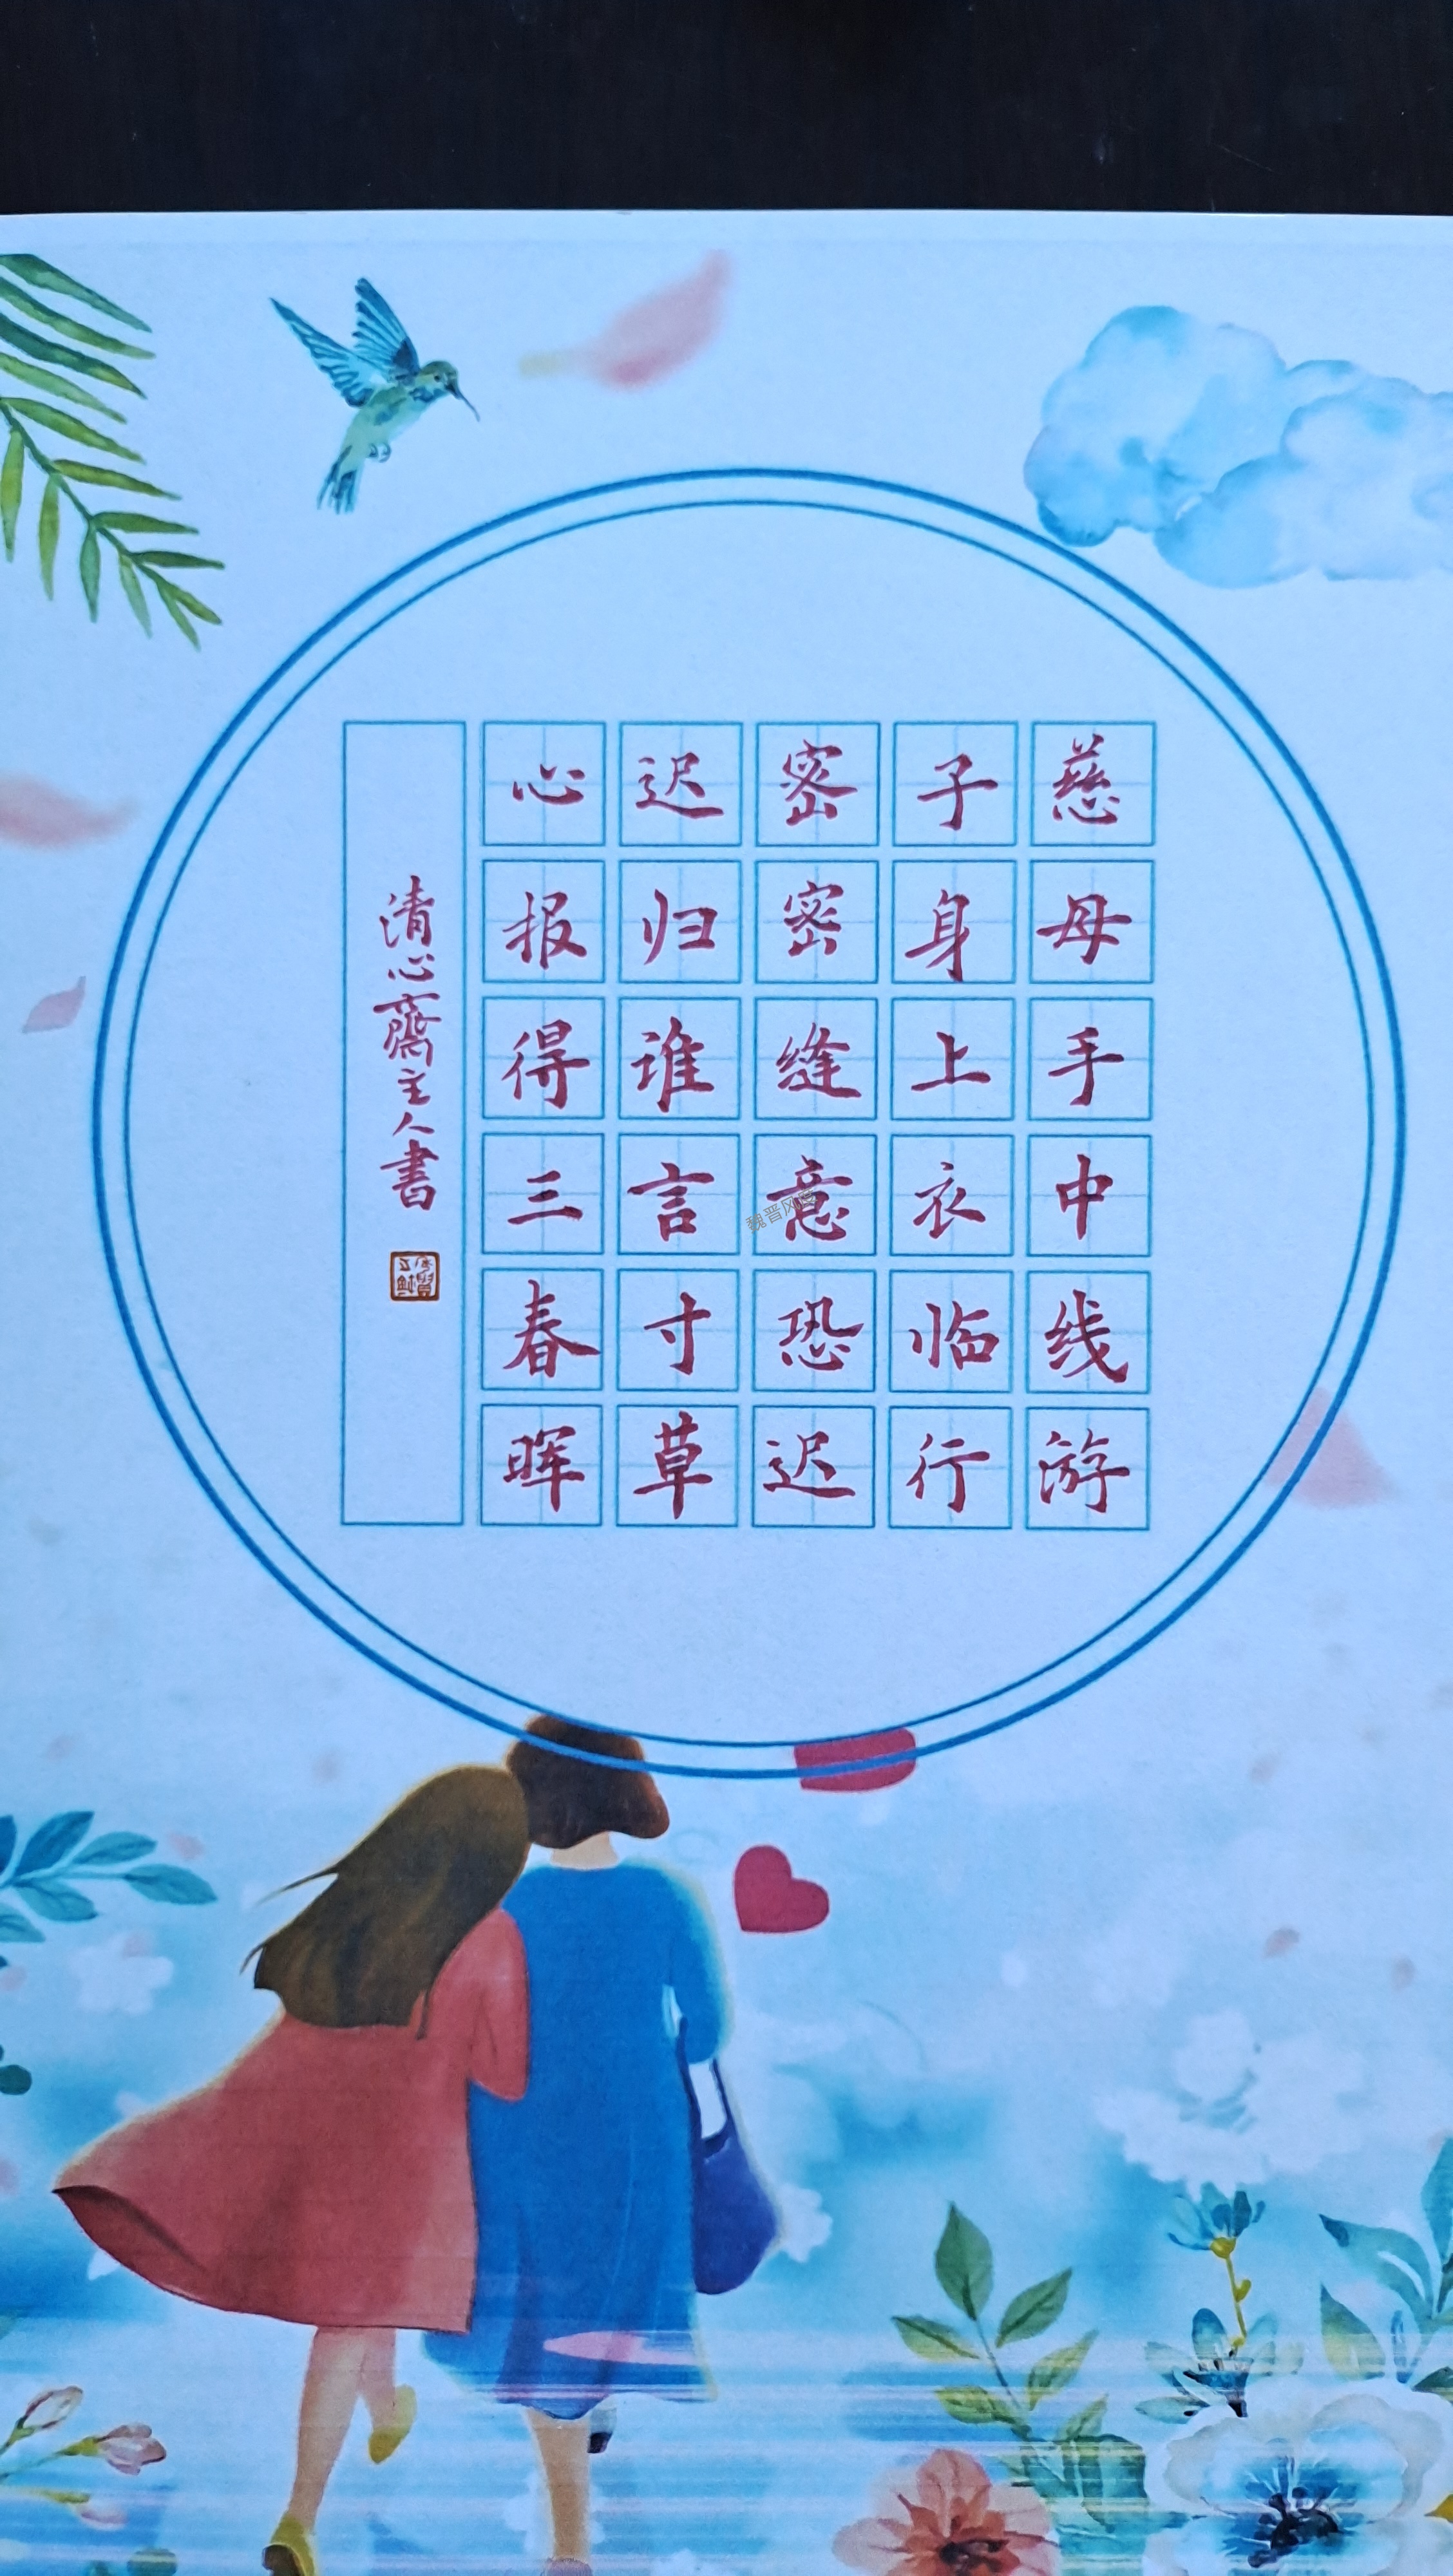 慈母手中线游
子身上衣临行
密密缝意恐迟
迟归谁言寸草
心报得三春晖
清心齋主人書
魏晋风